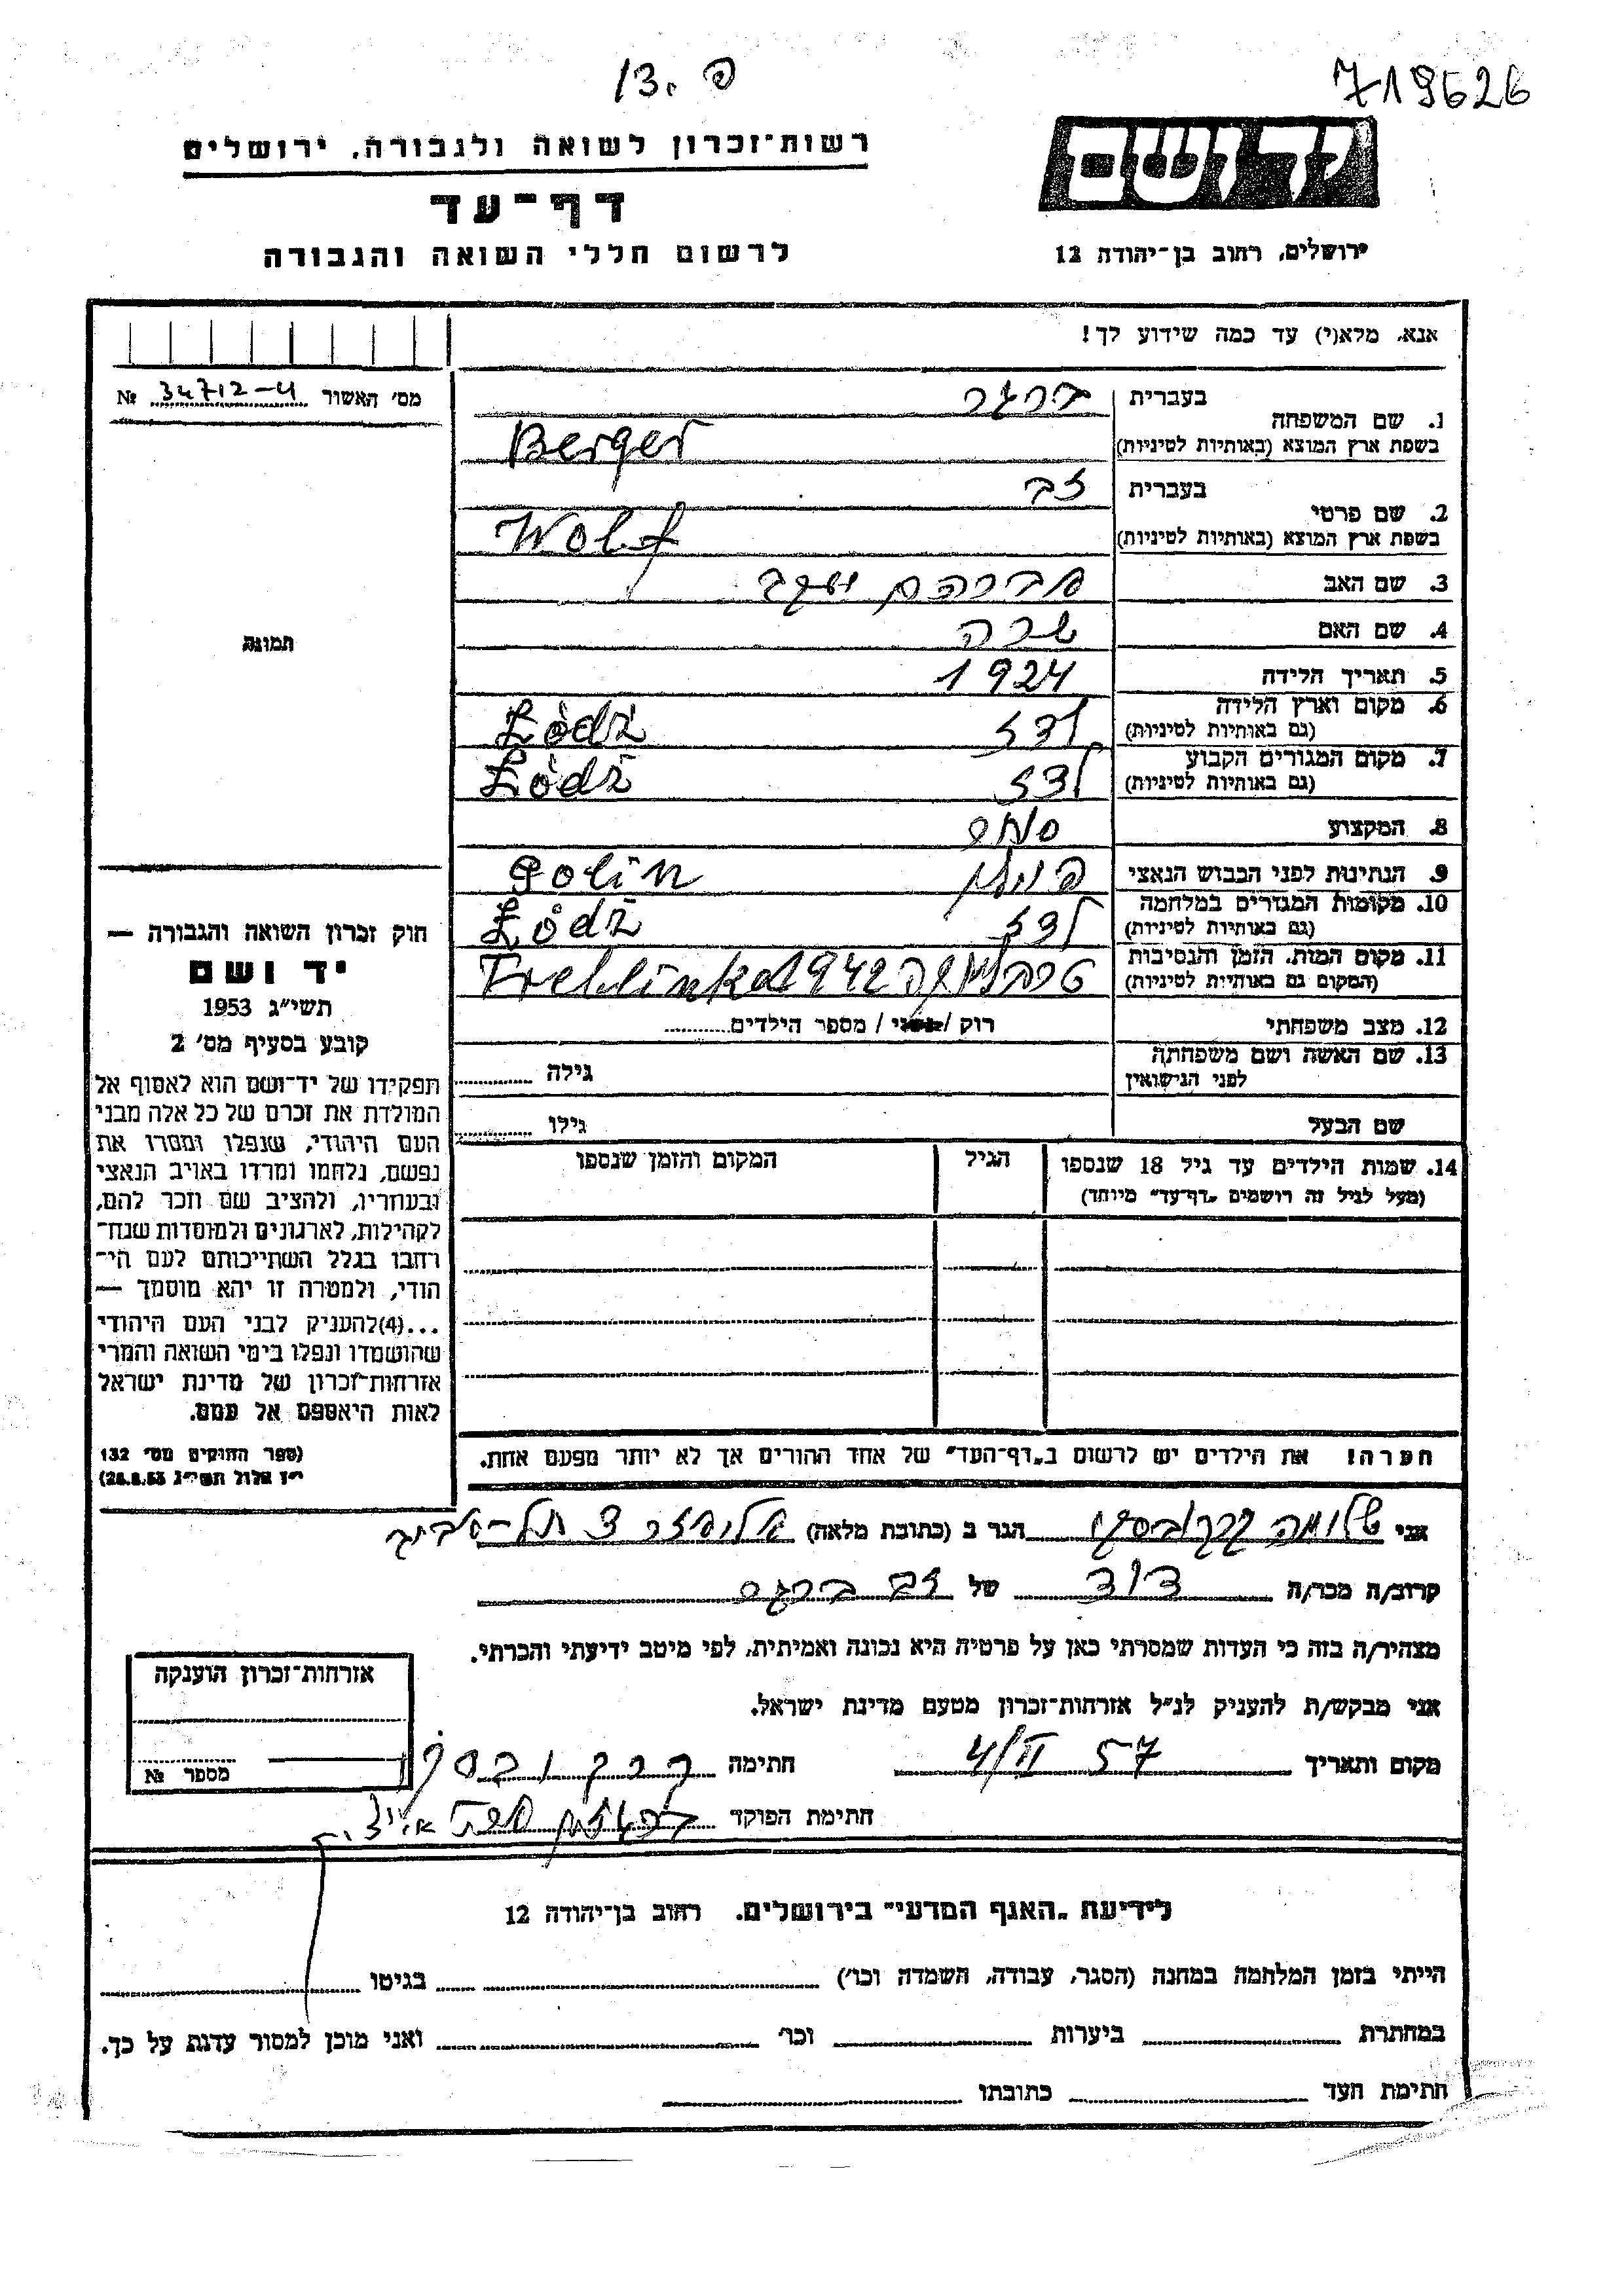 פ .13
719626
רשות־זכרון לשואה ולגבורה, ירושלים
דף־עד
לרשום חללי השואה והגבורה
יד ושם
ירושלים, רחוב בן־יהודה 12
אנא, מלא(י) עד כמה שידוע לך!
מס׳ האשור 34712-4 №
תמונה
1. שם המשפחה בעברית ברגר
בשפת ארץ המוצא (באותיות לטיניות) Berger
2. שם פרטי בעברית זב
בשפת ארץ המוצא (באותיות לטיניות) Wolf
3. שם האב אברהם יעקב
4. שם האם שרה
5. תאריך הלידה 1924
6. מקום וארץ הלידה
(גם באותיות לטיניות) לודז Łòdż
7. מקום המגורים הקבוע
(גם באותיות לטיניות) לודז Łòdż
8. המקצוע
9. הנתינות לפני הכבוש הנאצי פולין Polin
10. מקומות המגורים במלחמה
(גם באותיות לטיניות) לודז Łòdż
11. מקום המות, הזמן והנסיבות
(המקום גם באותיות לטיניות) טרבלינקה 1942 Treblinka
12. מצב משפחתי רוק / נשוי / מספר הילדים
13. שם האשה ושם משפחתה
לפני הנישואין גילה
שם הבעל גילו
14. שמות הילדים עד גיל 18 שנספו הגיל המקום והזמן שנספו
(מעל לגיל זה רושמים „דף־עד״ מיוחד)
הערה! את הילדים יש לרשום ב„דף־העד״ של אחד ההורים אך לא יותר מפעם אחת.
חוק זכרון השואה והגבורה —
יד ושם
תשי״ג 1953
קובע בסעיף מס׳ 2
תפקידו של יד־ושם הוא לאסוף אל
המולדת את זכרם של כל אלה מבני
העם היהודי, שנפלו ומסרו את
נפשם, נלחמו ומרדו באויב הנאצי
ובעוזריו, ולהציב שם וזכר להם,
לקהילות, לארגונים ולמוסדות שנח־
רחבו בגלל השתייכותם לעם הי־
הודי, ולמטרה זו יהא מוסמך —
...(4)להעניק לבני העם היהודי
שהושמדו ונפלו בימי השואה והמרי
אזרחות־זכרון של מדינת ישראל
לאות היאספם אל עמם.
(ספר החוקים מס׳ 132
י״ז אלול תשי״ג 28.8.53)
אני שלומה קרקובסקי הגר ב (כתובת מלאה) תל-אביב
קרוב/ה מכר/ה דוד של זב ברגר
מצהיר/ה בזה כי העדות שמסרתי כאן על פרטיה היא נכונה ואמיתית, לפי מיטב ידיעתי והכרתי.
אני מבקש/ת להעניק לנ״ל אזרחות־זכרון מטעם מדינת ישראל.
מקום ותאריך 4/II 57 חתימה קרקובסקי
חתימת הפוקד
אזרחות־זכרון הוענקה
מספר №
לידיעת „האגף המדעי״ בירושלים, רחוב בן־יהודה 12
הייתי בזמן המלחמה במחנה (הסגר, עבודה, השמדה וכו׳) בגיטו
במחתרת ביערות וכו׳ ואני מוכן למסור עדות על כך.
חתימת העד כתובתו